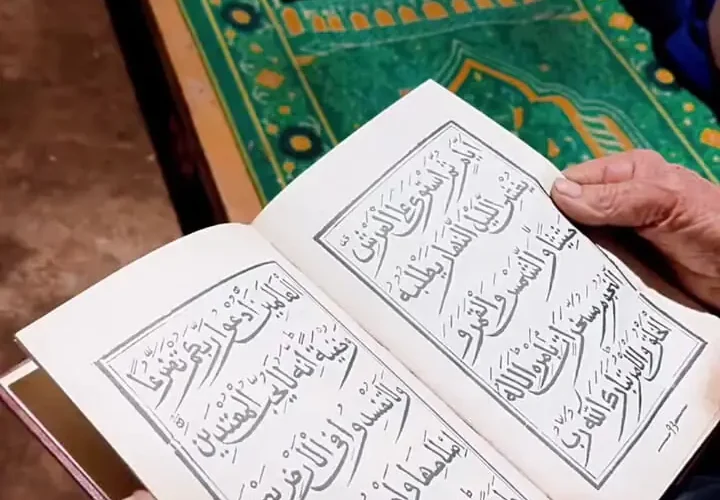 اَيَّامٍ ثُمَّ اسْتَوٰى عَلَى الْعَرْشِ
يُغْشِى الَّيْلَ النَّهَارَ يَطْلُبُهُ
حَثِيْثًا وَّالشَّمْسَ وَالْقَمَرَ وَ
النُّجُوْمَ مُسَخَّرَاتٍ بِاَمْرِهٖ اَلَا لَهُ
الْخَلْقُ وَالْاَمْرُ تَبَارَكَ اللّٰهُ رَبُّ
الْعَالَمِيْنَ اُدْعُوْا رَبَّكُمْ تَضَرُّعًا
وَّخُفْيَةً اِنَّهُ لَا يُحِبُّ الْمُعْتَدِيْنَ
وَلَا تُفْسِدُوْا فِى الْاَرْضِ بَعْدَ
اِصْلَاحِهَا